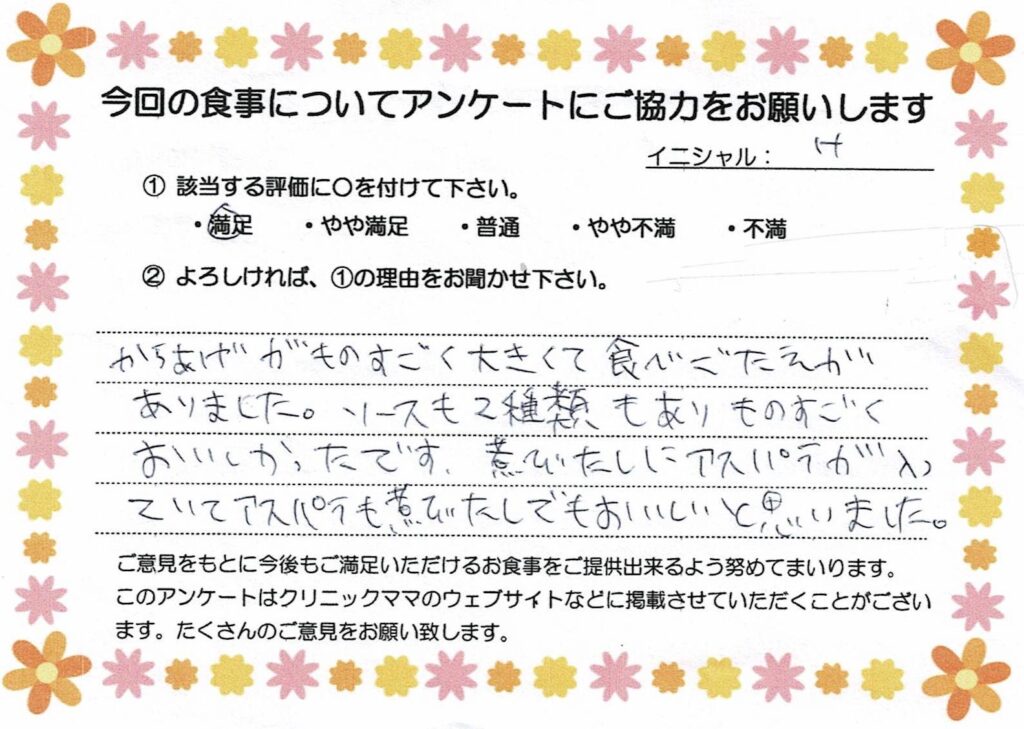 今回の食事についてアンケートにご協力をお願いします
イニシャル： け
① 該当する評価に〇を付けて下さい。
・満足 ・やや満足 ・普通 ・やや不満 ・不満
② よろしければ、①の理由をお聞かせ下さい。
からあげがものすごく大きくて食べごたえが
ありました。ソースも2種類もありものすごく
おいしかったです。煮びたしにアスパラが入っ
ていてアスパラも煮びたしでもおいしいと思いました。
ご意見をもとに今後もご満足いただけるお食事をご提供出来るよう努めてまいります。
このアンケートはクリニックママのウェブサイトなどに掲載させていただくことがござい
ます。たくさんのご意見をお願い致します。